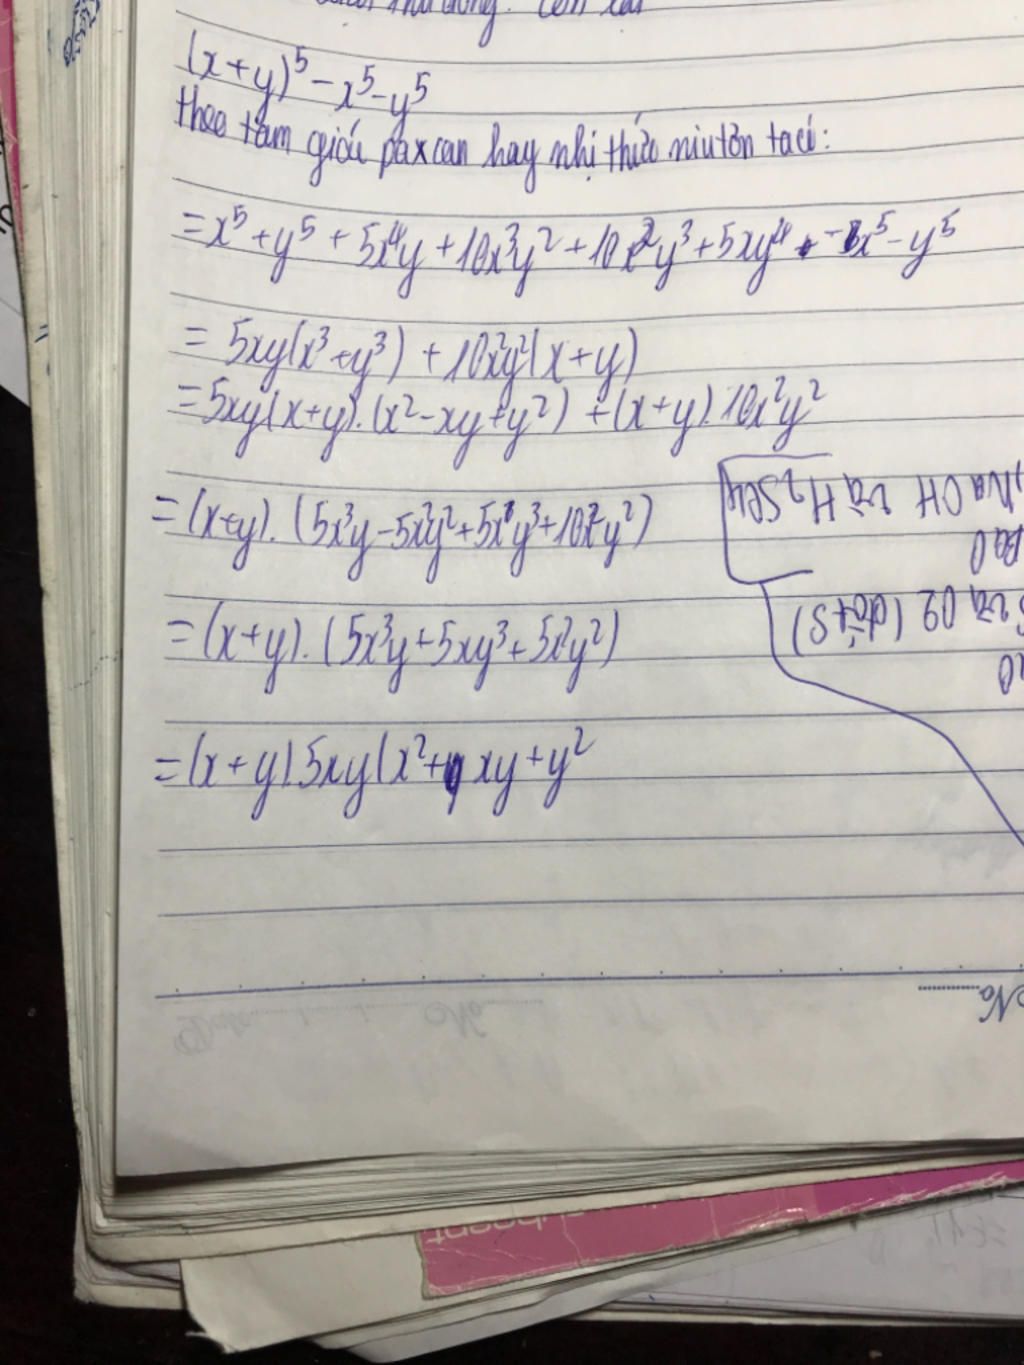 (x+y)⁵-x⁵-y⁵
theo tam giác paxcan hay nhị thức niutơn ta có:
= x⁵+y⁵+5x⁴y+10x³y²+10x²y³+5xy⁴-x⁵-y⁵
= 5xy(x³+y³)+10x²y²(x+y)
=5xy(x+y).(x²-xy+y²)+(x+y).10x²y²
=(x+y).(5x³y-5x²y²+5xy³+10x²y²)
=(x+y).(5x³y+5xy³+5x²y²)
=(x+y)5xy(x²+xy+y²
NaOH và H₂SO₄
và O2 (đốt S)
No